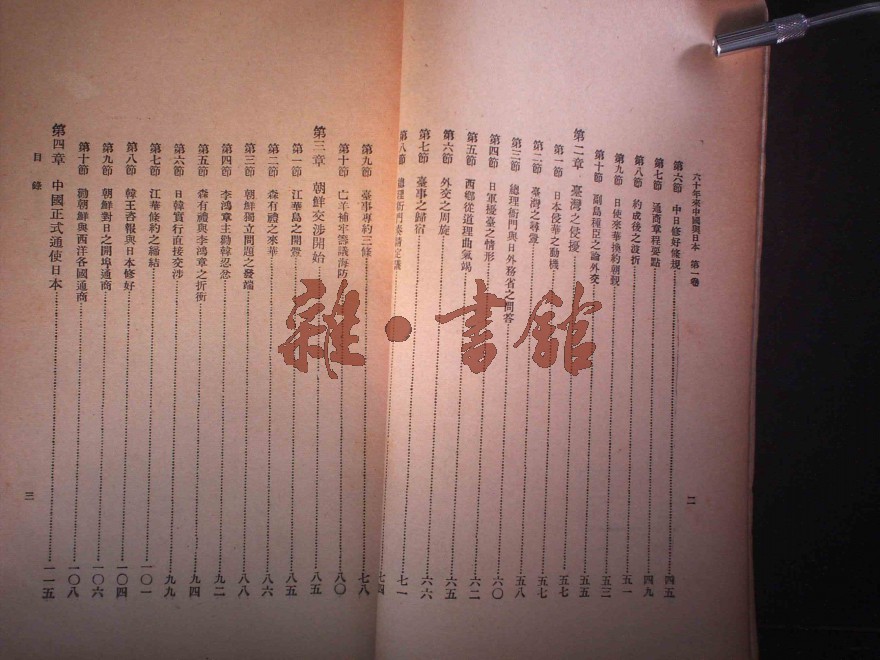 六十年來中國與日本 第一卷
二
第六節 中日修好條規 四五
第七節 通商章程要點 四九
第八節 約成後之波折 五一
第九節 日使來華換約朝覲 五三
第十節 副島種臣之論外交 五五
第二章 臺灣之侵擾 五七
第一節 日本侵華之動機 五七
第二節 臺灣之尋釁 五八
第三節 總理衙門與日外務省之問答 六〇
第四節 日軍擾臺之情形 六二
第五節 西鄉從道理曲氣竭 六五
第六節 外交之周旋 六六
第七節 臺事之歸宿 七一
第八節 總理衙門定議 七四
第九節 臺事專約三條 七八
第十節 亡羊補牢籌議海防 八〇
第三章 朝鮮交涉開始 八五
第一節 江華島之開釁 八五
第二節 森有禮之來華 八六
第三節 朝鮮獨立問題之發端 八八
第四節 李鴻章主勸韓忍忿 九二
第五節 森有禮與李鴻章之折衝 九四
第六節 日韓實行直接交涉 九九
第七節 江華條約之締結 一〇一
第八節 韓王咨報與日本修好 一〇四
第九節 朝鮮對日之開埠通商 一〇六
第十節 勸朝鮮與西洋各國通商 一〇八
第四章 中國正式通使日本 一一五
目錄
三
雜·書館